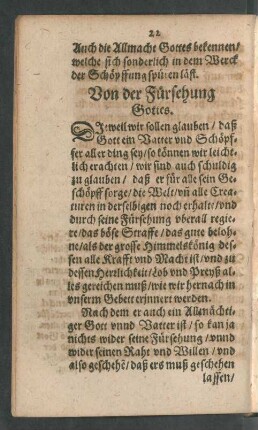 22
Auch die Allmacht Gottes bekennen/
welche sich sonderlich in dem Werck
der Schöpffung spüren läst.
Von der Fürsehung
Gottes.
DJeweil wir sollen glauben / daß
Gott ein Vatter vnd Schöpf-
fer aller ding sey/ so können wir leicht-
lich erachten / wir sind auch schuldig
zu glauben / daß er für alle sein Ge-
schöpff sorge/ die Welt/ vñ alle Crea-
turen in derselbigen noch erhalt/ vnd
durch seine Fürsehung vberall regie-
re/ das böse Straffe / das gute beloh-
ne/ als der grosse Himmelskönig des-
sen alle Krafft vnd Macht ist/ vnd zu
dessen Herrlichkeit/ Lob vnd Preyß al-
les gereichen muß/ wie wir hernach in
vnserm Gebett erjnnert werden.
Nach dem er auch ein Allmächti-
ger Gott vnnd Vatter ist / so kan ja
nichts wider seine Fürsehung / vnnd
wider seinen Raht vnd Willen / vnd
also geschehẽ/ daß ers muß geschehen
lassen/